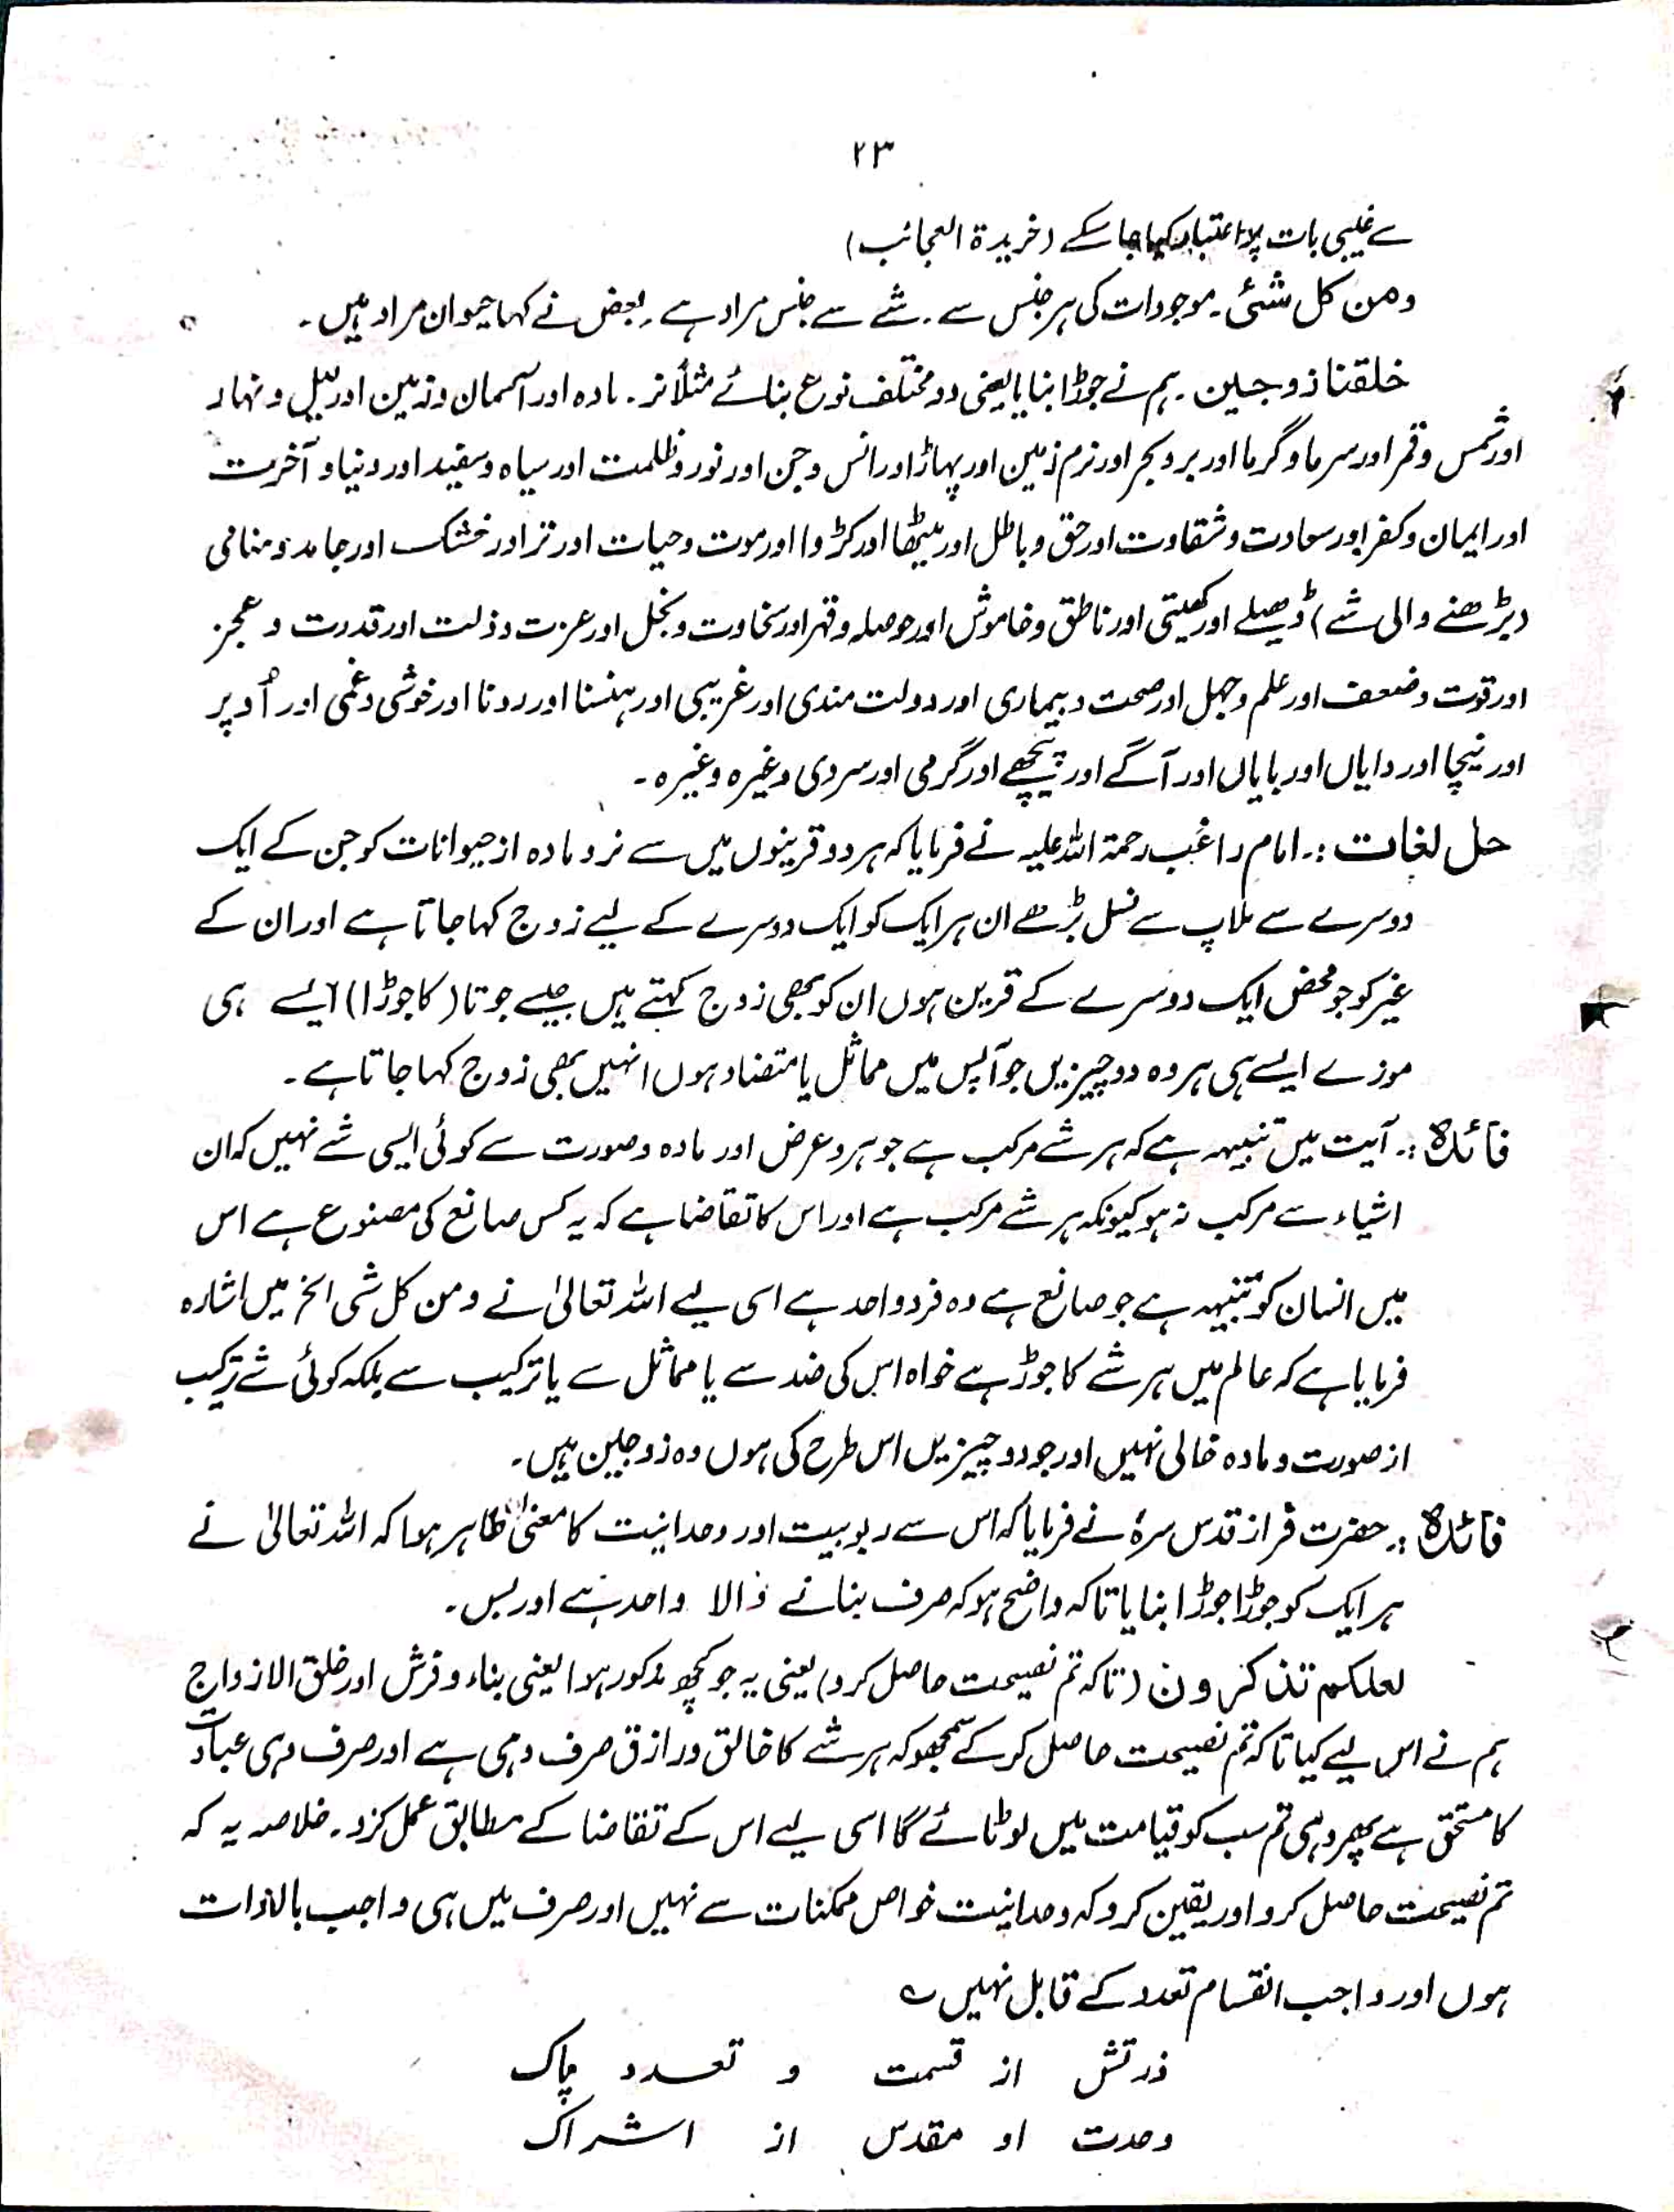 ۲۳
سے غیبی بات پر اعتبار کیا جا سکے (خریدۃ العجائب)
ومن کل شئی۔ موجودات کی ہر جنس سے۔ شے سے جنس مراد ہے۔ بعض نے کہا حیوان مراد ہیں۔
خلقنا زوجین۔ ہم نے جوڑا بنایا یعنی دو مختلف نوع بنائے مثلاً نر۔ مادہ اور آسمان و زمین اور لیل و نہار
اور شمس و قمر اور سرما و گرما اور بر و بحر اور نرم زمین اور پہاڑ اور انس و جن اور نور و ظلمت اور سیاہ و سفید اور دنیا و آخرت
اور ایمان و کفر اور سعادت و شقاوت اور حق و باطل اور میٹھا اور کڑوا اور موت و حیات اور تر اور خشک اور جامد و نامی
(بڑھنے والی شے) ڈھیلے اور کھیتی اور ناطق و خاموش اور حوصلہ و قہر اور سخاوت و بخل اور عزت و ذلت اور قدرت و عجز
اور قوت و ضعف اور علم و جہل اور صحت و بیماری اور دولت مندی اور غریبی اور ہنسنا اور رونا اور خوشی و غمی اور اُوپر
اور نیچا اور دایاں اور بایاں اور آگے اور پیچھے اور گرمی اور سردی وغیرہ وغیرہ۔
حل لغات :۔ امام راغب رحمۃ اللہ علیہ نے فرمایا کہ ہر دو قرینوں میں سے نر و مادہ از حیوانات کو جن کے ایک
دوسرے سے ملاپ سے نسل بڑھے ان ہر ایک کو ایک دوسرے کے لیے زوج کہا جاتا ہے اور ان کے
غیر کو جو محض ایک دوسرے کے قرین ہوں ان کو بھی زوج کہتے ہیں جیسے جوتا (کا جوڑا) ایسے ہی
موزے ایسے ہی ہر وہ دو چیزیں جو آپس میں مماثل یا متضاد ہوں انہیں بھی زوج کہا جاتا ہے۔
فائدہ :۔ آیت میں تنبیہہ ہے کہ ہر شے مرکب ہے جوہر و عرض اور مادہ و صورت سے کوئی ایسی شے نہیں کہ ان
اشیاء سے مرکب نہ ہو کیونکہ ہر شے مرکب ہے اور اس کا تقاضا ہے کہ یہ کس صانع کی مصنوع ہے اس
میں انسان کو تنبیہہ ہے جو صانع ہے وہ فرد واحد ہے اسی لیے اللہ تعالیٰ نے ومن کل شی الخ میں اشارہ
فرمایا ہے کہ عالم میں ہر شے کا جوڑ ہے خواہ اس کی ضد سے یا مماثل سے یا ترکیب سے بلکہ کوئی شے ترکب
از صورت و مادہ خالی نہیں اور جو دو چیزیں اس طرح کی ہوں وہ زوجین ہیں۔
فائدہ :۔ حضرت خراز قدس سرہٗ نے فرمایا کہ اس سے ربوبیت اور وحدانیت کا معنیٰ ظاہر ہوا کہ اللہ تعالیٰ نے
ہر ایک کو جوڑا جوڑا بنایا تاکہ واضح ہو کہ صرف بنانے والا واحد ہے اور بس۔
لعلکم تذکرون (تاکہ تم نصیحت حاصل کرو) یعنی یہ جو کچھ مذکور ہوا یعنی بناء و فرش اور خلق الازواج
ہم نے اس لیے کیا تاکہ تم نصیحت حاصل کر کے سمجھو کہ ہر شے کا خالق و رازق صرف وہی ہے اور صرف وہی عبادت
کا مستحق ہے پھر وہی تم سب کو قیامت میں لوٹائے گا اسی لیے اس کے تقاضا کے مطابق عمل کرو۔ خلاصہ یہ کہ
تم نصیحت حاصل کرو اور یقین کرو کہ وحدانیت خواص ممکنات سے نہیں اور صرف میں ہی واجب بالذات
ہوں اور واجب انقسام تعدد کے قابل نہیں ؎
از قسمت و تعدد پاک
وحدت او مقدس از اشراک